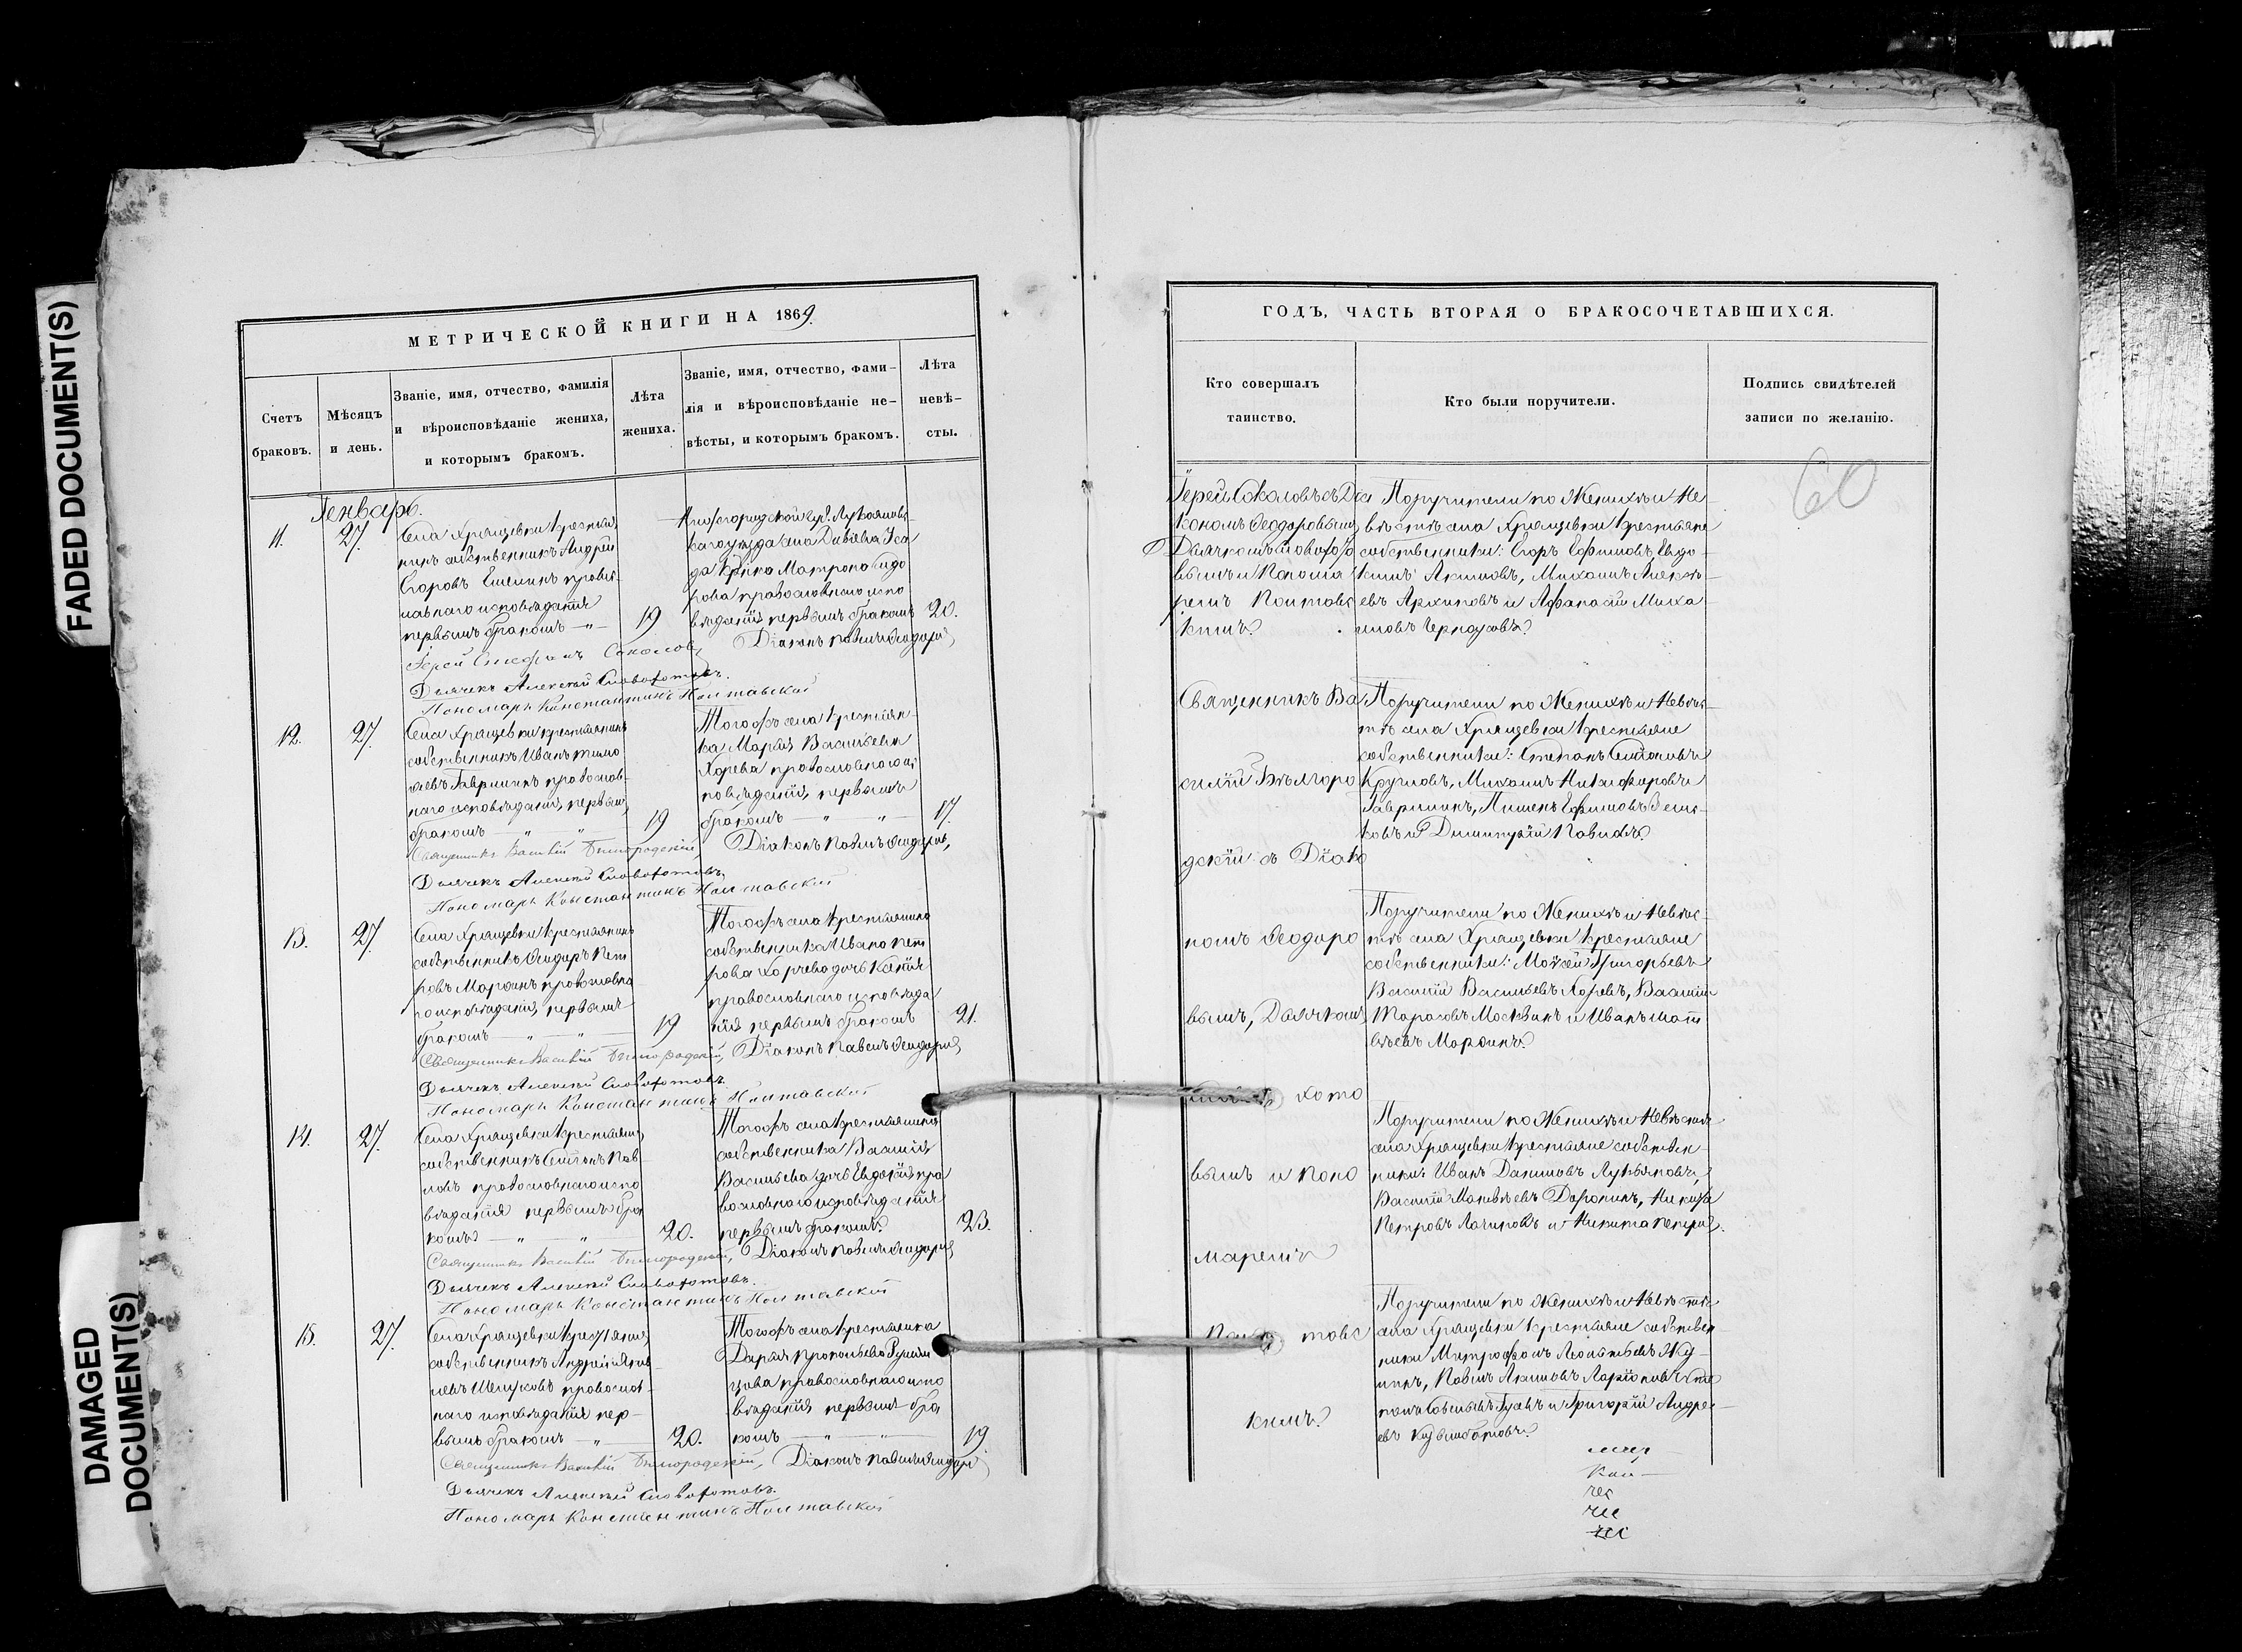 FADED DOCUMENT(S)
DAMAGED
DOCUMENT(S)
МЕТРИЧЕСКОЙ КНИГИ НА 1869.
Счетъ
браковъ.
Мѣсяцъ
и день.
Званіе, имя, отчество, фамилія
и вѣроисповѣданіе жениха,
и которымъ бракомъ.
Лѣта
жениха.
Званіе, имя, отчество, фами-
лія и вѣроисповѣданіе не-
вѣсты, и которымъ бракомъ.
Лѣта
невѣ-
сты.
Генварь.
11.
27.
Села Хрящевки крестья
нинъ собственникъ Андрей
Егоровъ православ
наго исповѣданія
первымъ бракомъ
19
уѣзда села
Матрона Сидо
рова православнаго испо
вѣданія первымъ бракомъ
20.
Іерей Стефанъ Соколовъ,
Діаконъ Павелъ Ѳеодоровъ,
Дьячекъ Алексѣй Словохотовъ.
Пономарь Константинъ Полтавскій
12.
27.
Села Хрящевки крестьянинъ
собственникъ Иванъ Тимо
ѳеевъ Гаврилинъ православ-
наго исповѣданія, первымъ
бракомъ
19
Тогожъ села крестьян-
ка Марья Васильева
Хорева православнаго ис
повѣданія, первымъ
бракомъ
17.
Священникъ Василій Бѣлгородскій,
Діаконъ Павелъ Ѳеодоровъ,
Дьячекъ Алексѣй Словохотовъ,
Пономарь Константинъ Полтавскій
13.
27.
Села Хрящевки крестьянинъ
собственникъ Ѳеодоръ Пет
ровъ Мордвинъ православна
го исповѣданія, первымъ
бракомъ
19
Тогожъ села крестьянина
собственника Ивана Пет
рова дочь
православнаго исповѣда
нія первымъ бракомъ
21.
Священникъ Василій Бѣлгородскій,
Діаконъ Павелъ Ѳеодоровъ,
Дьячекъ Алексѣй Словохотовъ.
Пономарь Константинъ Полтавскій
14.
27.
Села Хрящевки крестьянинъ
собственникъ Павловъ православнаго испо
вѣданія первымъ бра
комъ
20.
Тогожъ села крестьянина
собственника Василія
Васильева дочь Евдокія пра
вославнаго исповѣданія
первымъ бракомъ.
23.
Священникъ Василій Бѣлгородскій,
Діаконъ Павелъ Ѳеодоровъ,
Дьячекъ Алексѣй Словохотовъ.
Пономарь Константинъ Полтавскій
15.
27.
Села Хрящевки крестьянинъ
собственникъ Андрей
православ-
наго исповѣданія пер-
вымъ бракомъ
20.
Тогожъ села крестьянка
Дарья Прокопьева Румян
цова православнаго испо
вѣданія первымъ бра
комъ
19.
Священникъ Василій Бѣлгородскій,
Діаконъ Павелъ Ѳеодоровъ
Дьячекъ Алексѣй Словохотовъ.
Пономарь Константинъ Полтавскій
ГОДЪ, ЧАСТЬ ВТОРАЯ О БРАКОСОЧЕТАВШИХСЯ.
Кто совершалъ
таинство.
Кто были поручители.
Подпись свидѣтелей
записи по желанію.
60
Іерей Соколовъ съ Діа
кономъ Ѳеодоровымъ
Дьячкомъ Словохото
вымъ и Понома
ремъ Полтавс
кимъ.
Поручители по Женихѣ и Не-
вѣстѣ села Хрящевки крестьяне
собственники: Егоръ Ефимовъ, Евдо-
кимъ Акимовъ, Михаилъ Алексѣ-
евъ Архиповъ и Афанасій Миха-
иловъ Черноусовъ.
Священникъ Ва
силій Бѣлгоро
дскій съ Діако
номъ Ѳеодоро
вымъ, Дьячкомъ
хото
вымъ и Поно
маремъ
тавс
кимъ.
Поручители по Женихѣ и Невѣс-
тѣ села Хрящевки крестьяне
собственники: Степанъ
Кругловъ, Михаилъ Никифоровъ
Гаврилинъ, Пименъ Ефимовъ
и Димитрій Павловъ.
Поручители по Женихѣ и Невѣс-
тѣ села Хрящевки крестьяне
собственники: Моѵсей Григорьевъ
Василій Васильевъ Хоревъ, Василій
Тарасовъ Москвинъ и Иванъ Мат
вѣевъ Мордвинъ.
Поручители по Женихѣ и Невѣстѣ
села Хрящевки крестьяне собствен-
ники: Иванъ Даниловъ Лукьяновъ,
Василій Матвѣевъ Доронинъ,
Петровъ и Никита Петровъ.
Поручители по Женихѣ и Невѣстѣ
села Хрящевки крестьяне собствен
ники Митрофанъ Леонтьевъ
Павелъ Акимовъ Ларіоновъ
и Григорій Андре-
евъ